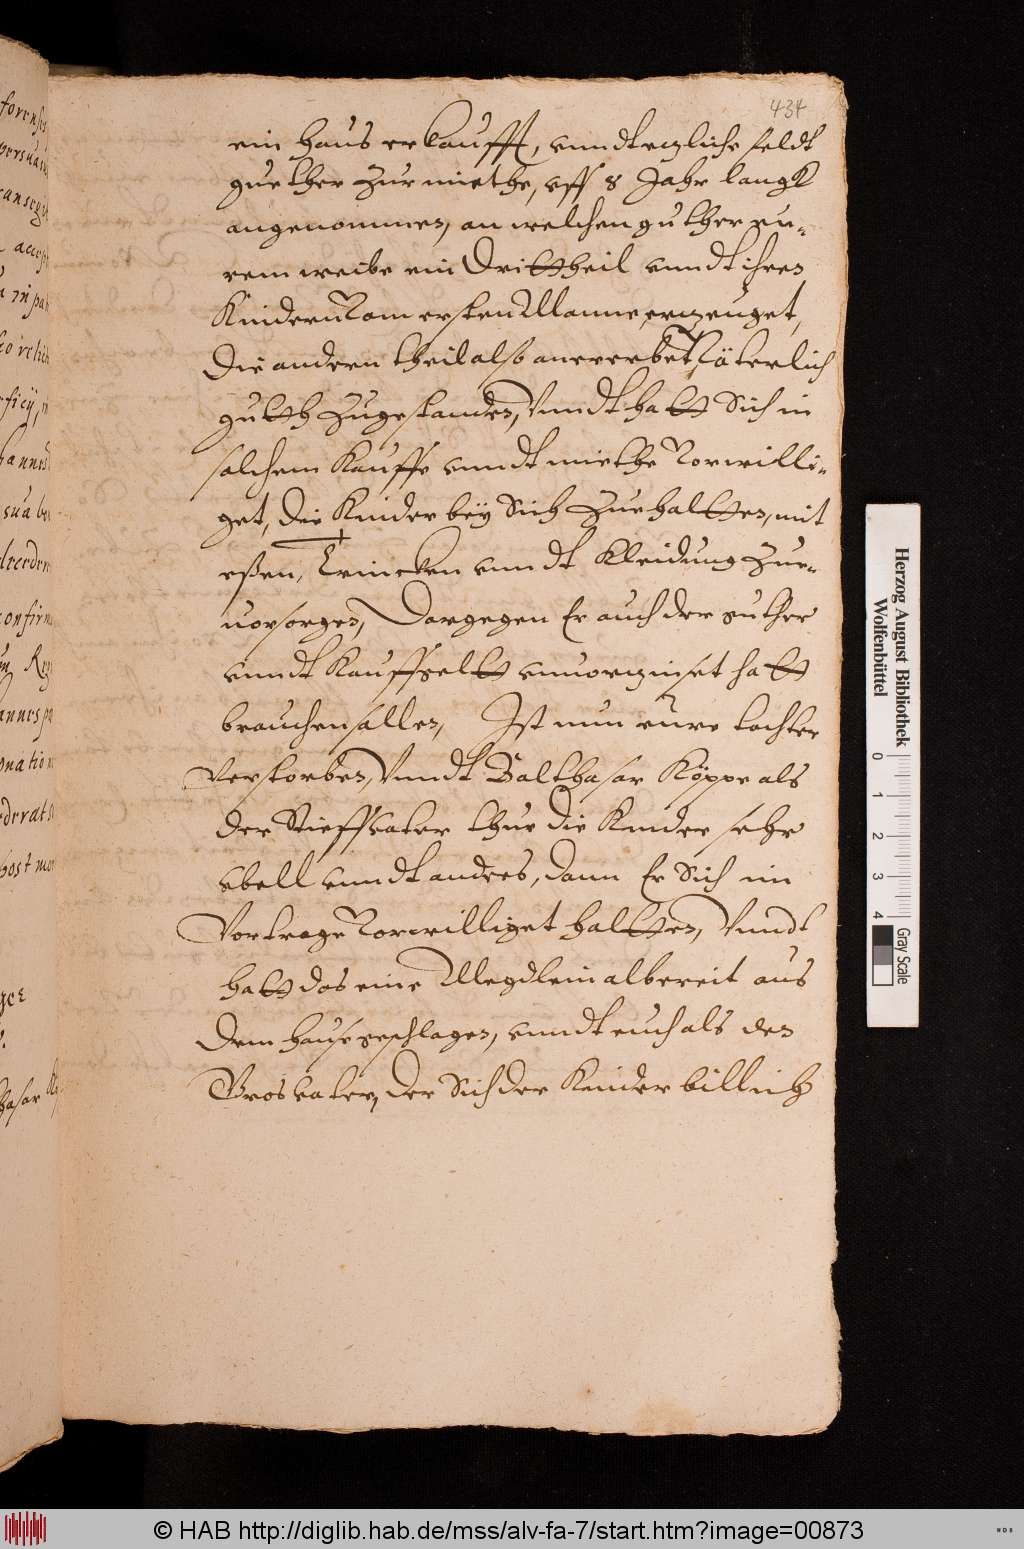 434
ein Haus erkaufft, vnndt etzliche feldt
guether zur miethe, vff 8 Jahr langk
angenommen, an welchen guthern eu-
rem weibe ein Drittheil vnndt ihren
Kindern vom ersten Manne erzeuget,
die andern theil als anererbet Väterlich
gutth zugestanden, vnndt hatt Sich in
solchem Kauffe vnndt miethe vorwilli-
get, die Kinder beÿ Sich zuehaltten, mit
eßen, Trincken vnndt Kleidung zue-
uorsorgen, Dargegen Er auch der guther
vnndt Kauffgeltt vnuorzinset hatt
brauchen sollen, Ist nun eure tochter
verstorben, vnndt Balthasar Köppe als
der Stieffvater thue die Kinder sehr
vbell vnndt anders, dann Er Sich im
Vortrage vorwilliget haltten, vnndt
hatt das eine Megdlein albereit aus
dem hause geschlagen, vnndt euch als den
Grosvater, der Sich der Kinder billich
Herzog August Bibliothek
Wolfenbüttel
0 1 2 3 4
Gray Scale
© HAB http://diglib.hab.de/mss/alv-fa-7/start.htm?image=00873